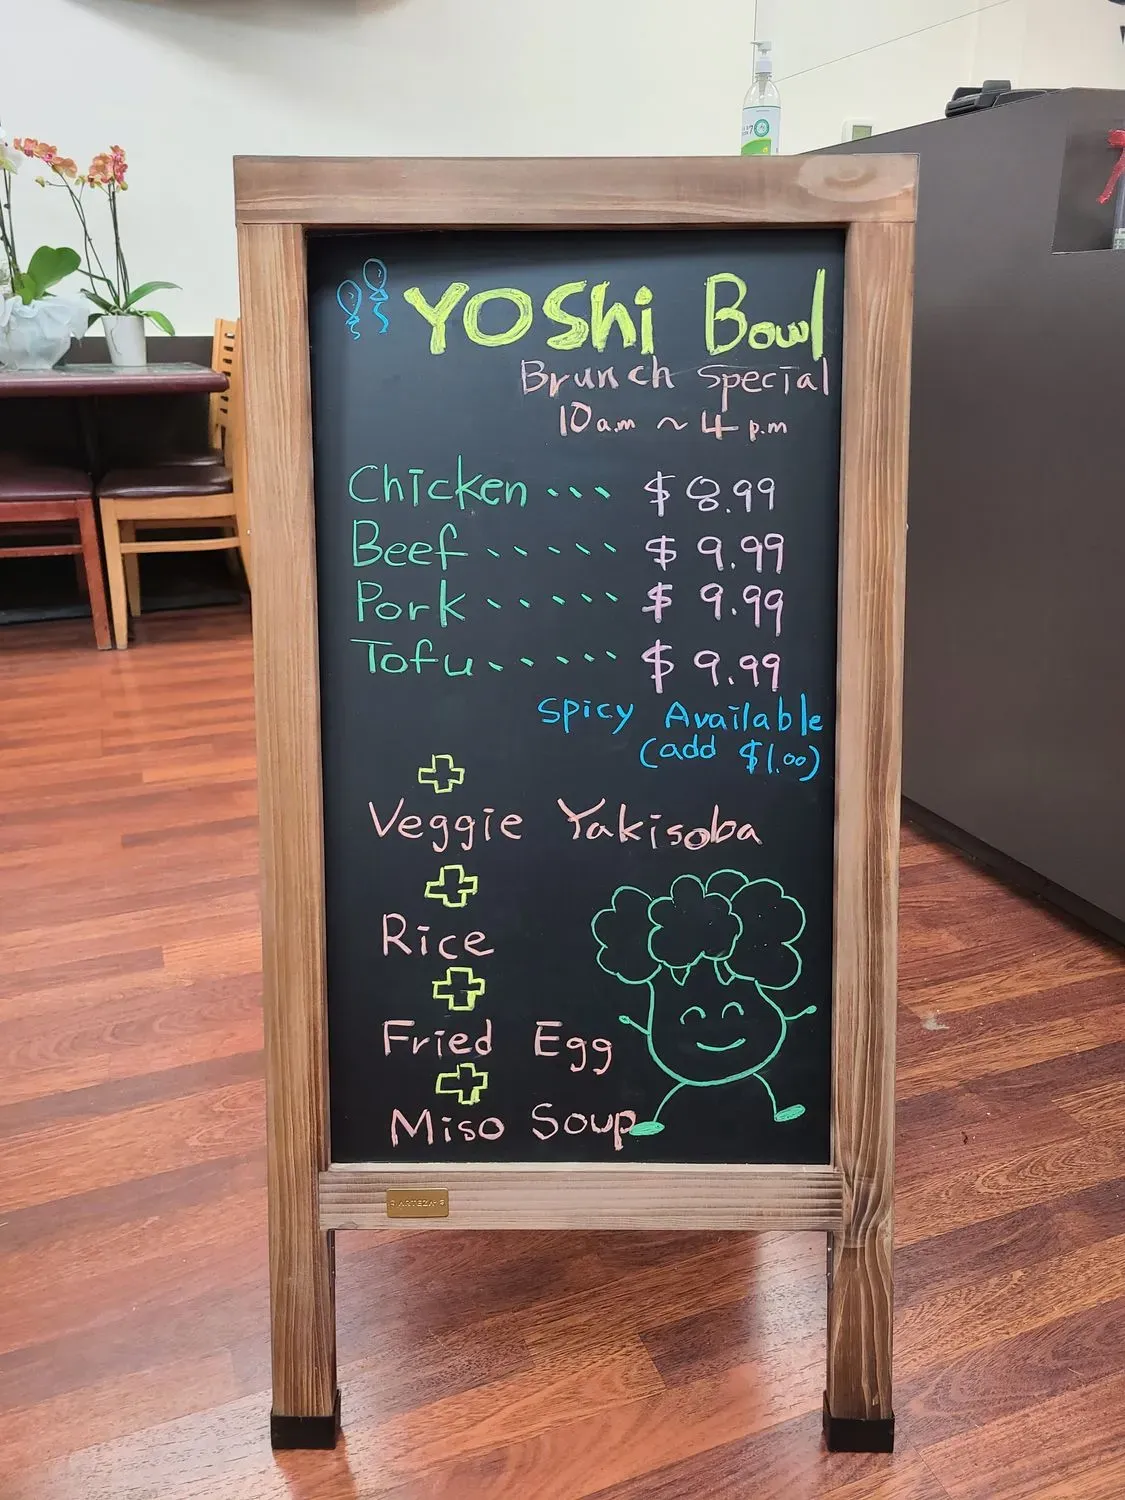 YOShi Bowl
Brunch Special
10 a.m ~ 4 p.m
Chicken ... $ 8.99
Beef ..... $ 9.99
Pork ..... $ 9.99
Tofu ..... $ 9.99
Spicy Available
(add $1.00)
+
Veggie Yakisoba
+
Rice
+
Fried Egg
+
Miso Soup
ARTEZA